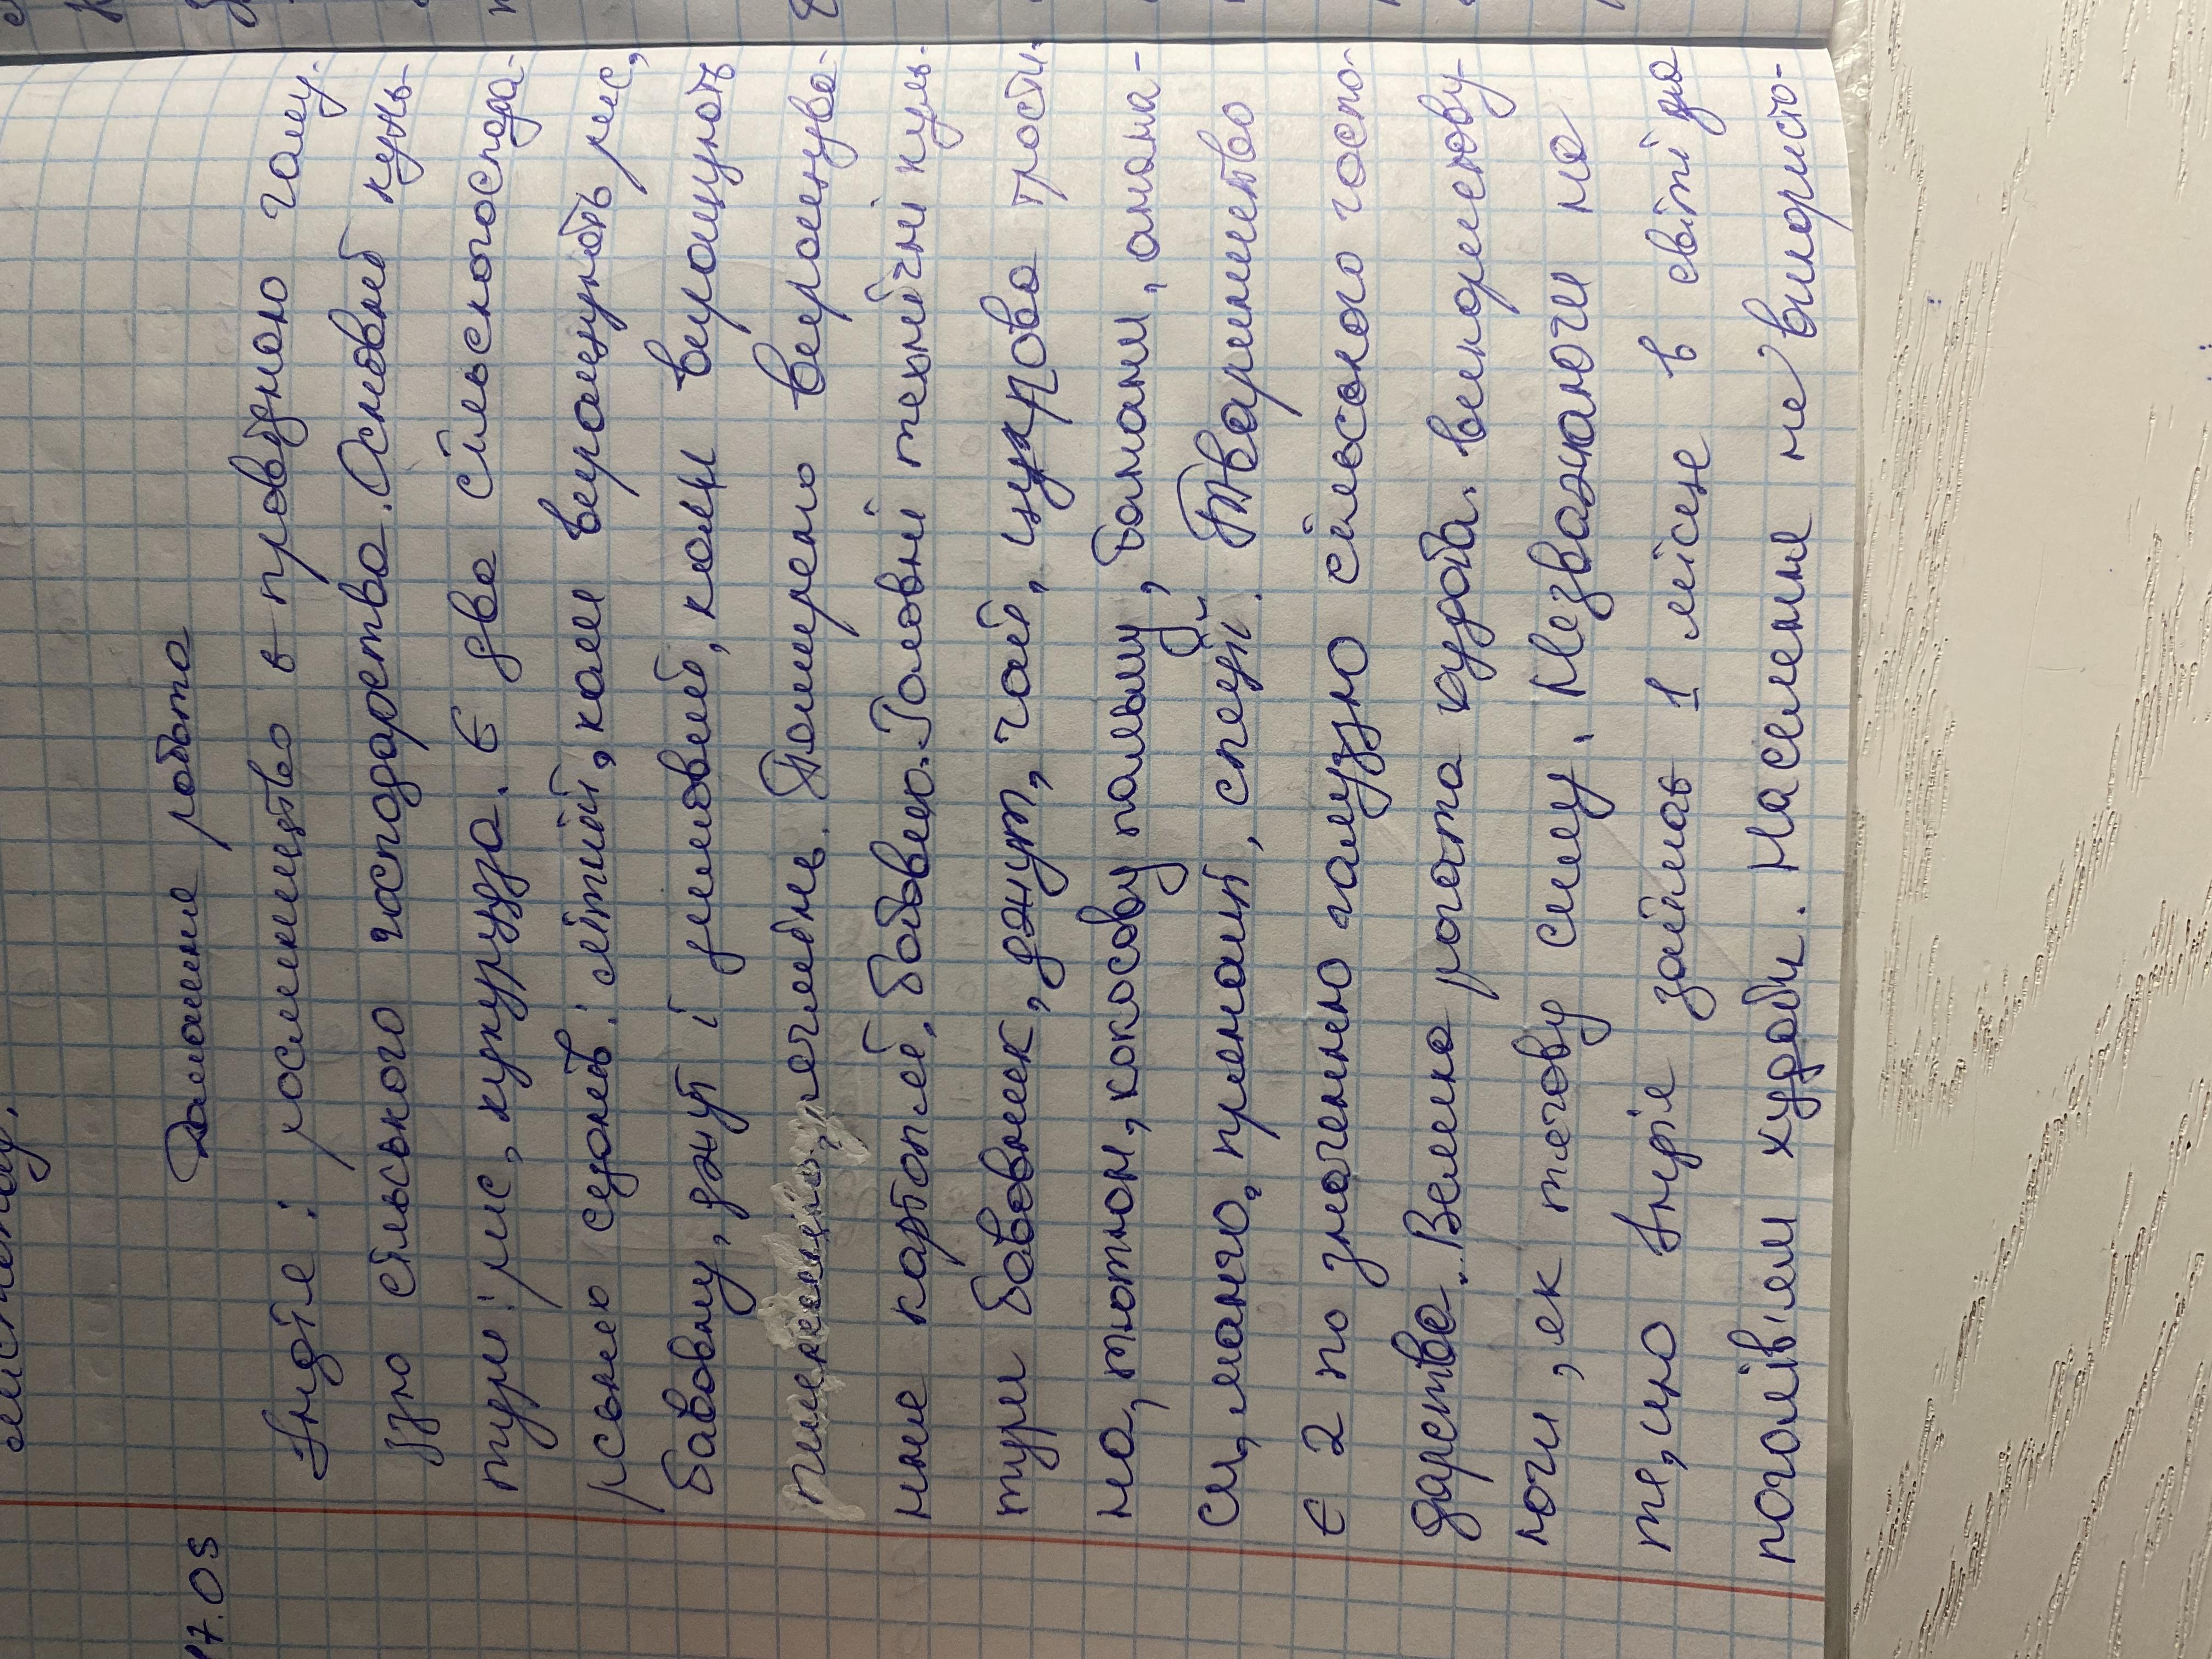 17.05
Домашня робота
Індія: рослинництво є провідною галу-
ззю сільського господарства. Основні куль-
тури: рис, кукурудза. Є два сільськогоспода-
рських сезонів: літній, коли вирощують рис,
бавовну, джут і зимовий, коли вирощують
пшеницю, ячмінь. Поширено вирощува-
ння картоплі, бобових. Головні технічні куль-
тури бавовник, джут, чай, цукрова трости-
на, тютюн, кокосову пальму, банани, анана-
си, манго, прянощі, спеції. Тваринництво
є 2 по значенню галуззю сільського госпо-
дарства. Велика рогата худоба. використову-
ючи, як тягову силу. Незважаючи на
те, що Індія займає 1 місце в світі за
поголів'ям худоби. Населення не використо-